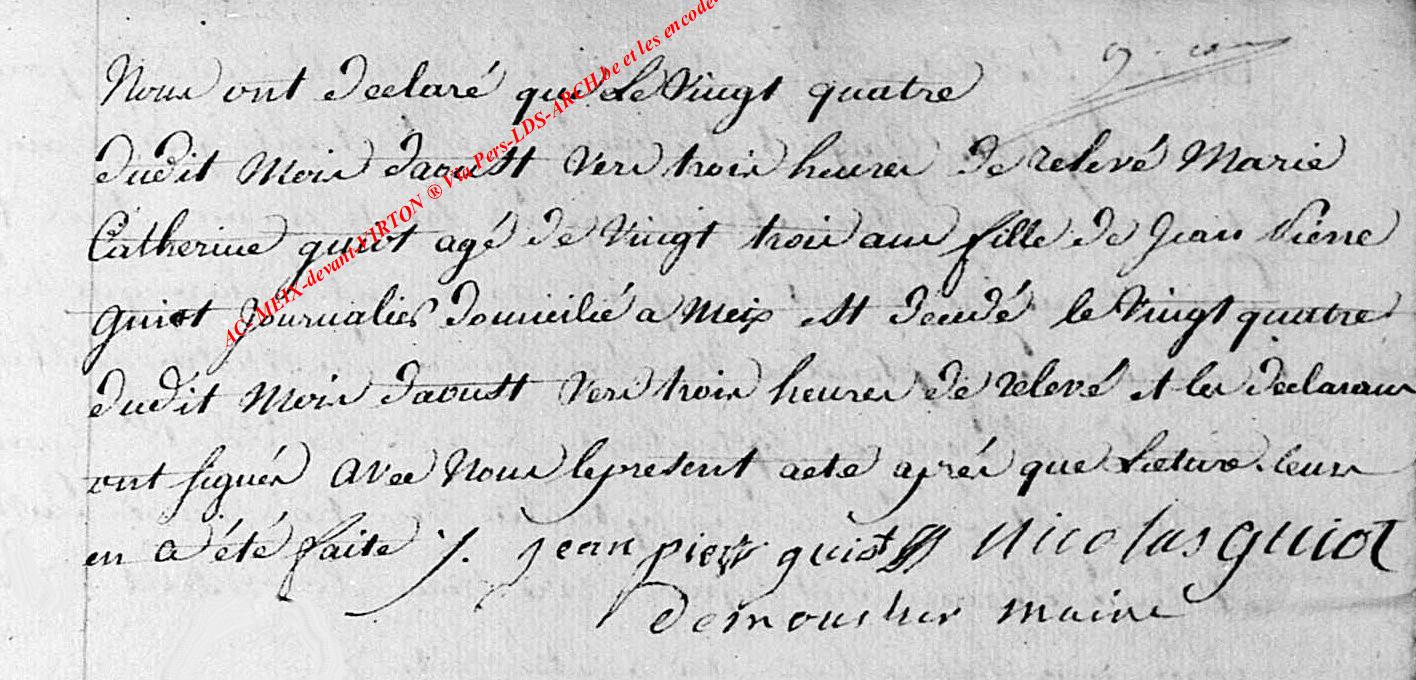 Nous ont declaré que Le Vingt quatre
dudit Mois daoust Vers trois heures de relevé Marie
Catherine guiot agé de Vingt trois ans fille de Jean Pierre
guiot Journalier domicilié a Meix est decedé le Vingt quatre
dudit Mois daoust Vers trois heures de relevé et les declarans
ont signés avec Nous le present acte aprés que Lecture leur
en a été faite /.
jean pier guiot nicolas guiot
maire
AC-MEIX-devant-VIRTON ® Via Pers-LDS-ARCH.be et les encode